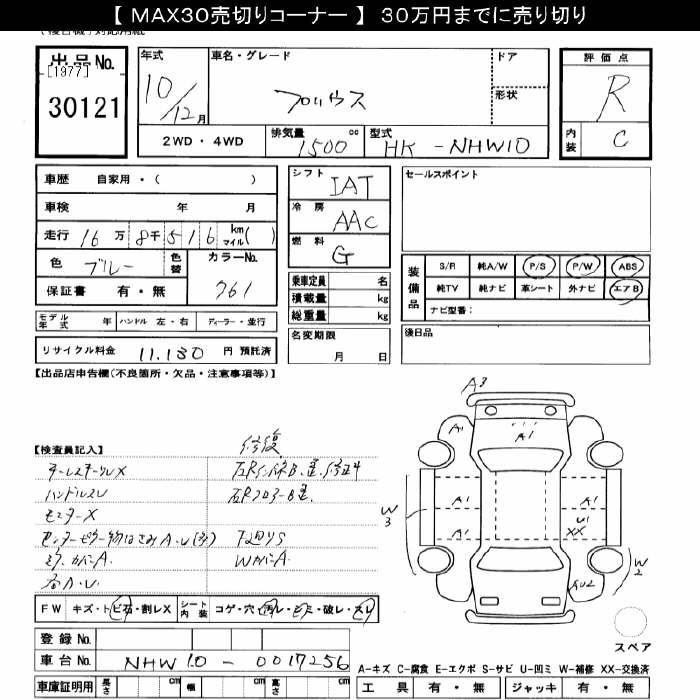 【 MAX30売切りコーナー 】 30万円までに売り切り
出品No.
[1977]
30121
年式
10/12月
車名・グレード
プリウス
ドア
形状
評価点
R
内装
C
2WD・4WD
排気量
1500 cc
型式
HK-NHW10
車歴 自家用・( )
車検 年 月
走行 16万 8千 5 1 6 km マイル( )
色 ブルー 色替
カラーNo.
961
保証書 有・無
シフト
IAT
冷房
AAC
燃料
G
乗車定員 名
積載量 kg
総重量 kg
名変期限
月 日
セールスポイント
装備品
S/R 純A/W P/S P/W ABS
純TV 純ナビ 革シート 外ナビ エアB
ナビ型番:
後日品
モデル年式 年 ハンドル 左・右 ディーラー・並行
リサイクル料金 11.130 円 預託済
【出品店申告欄(不良箇所・欠品・注意事項等)】
【検査員記入】
修復
ハンドルスレ
下廻りS
WカバーA
FW キズ・トビ石・割レX
シート内装 コゲ・穴・汚レ・シミ・破レ・スレ
登録No.
車台No. NHW10-0017256
車庫証明用 長さ cm 幅 cm 高さ cm
A3
A1
A1
A1
A1
A1
A1
U1
XX
W3
W2
AU2
スペア
A-キズ C-腐食 E-エクボ S-サビ U-凹ミ W-補修 XX-交換済
工具 有・無 ジャッキ 有・無